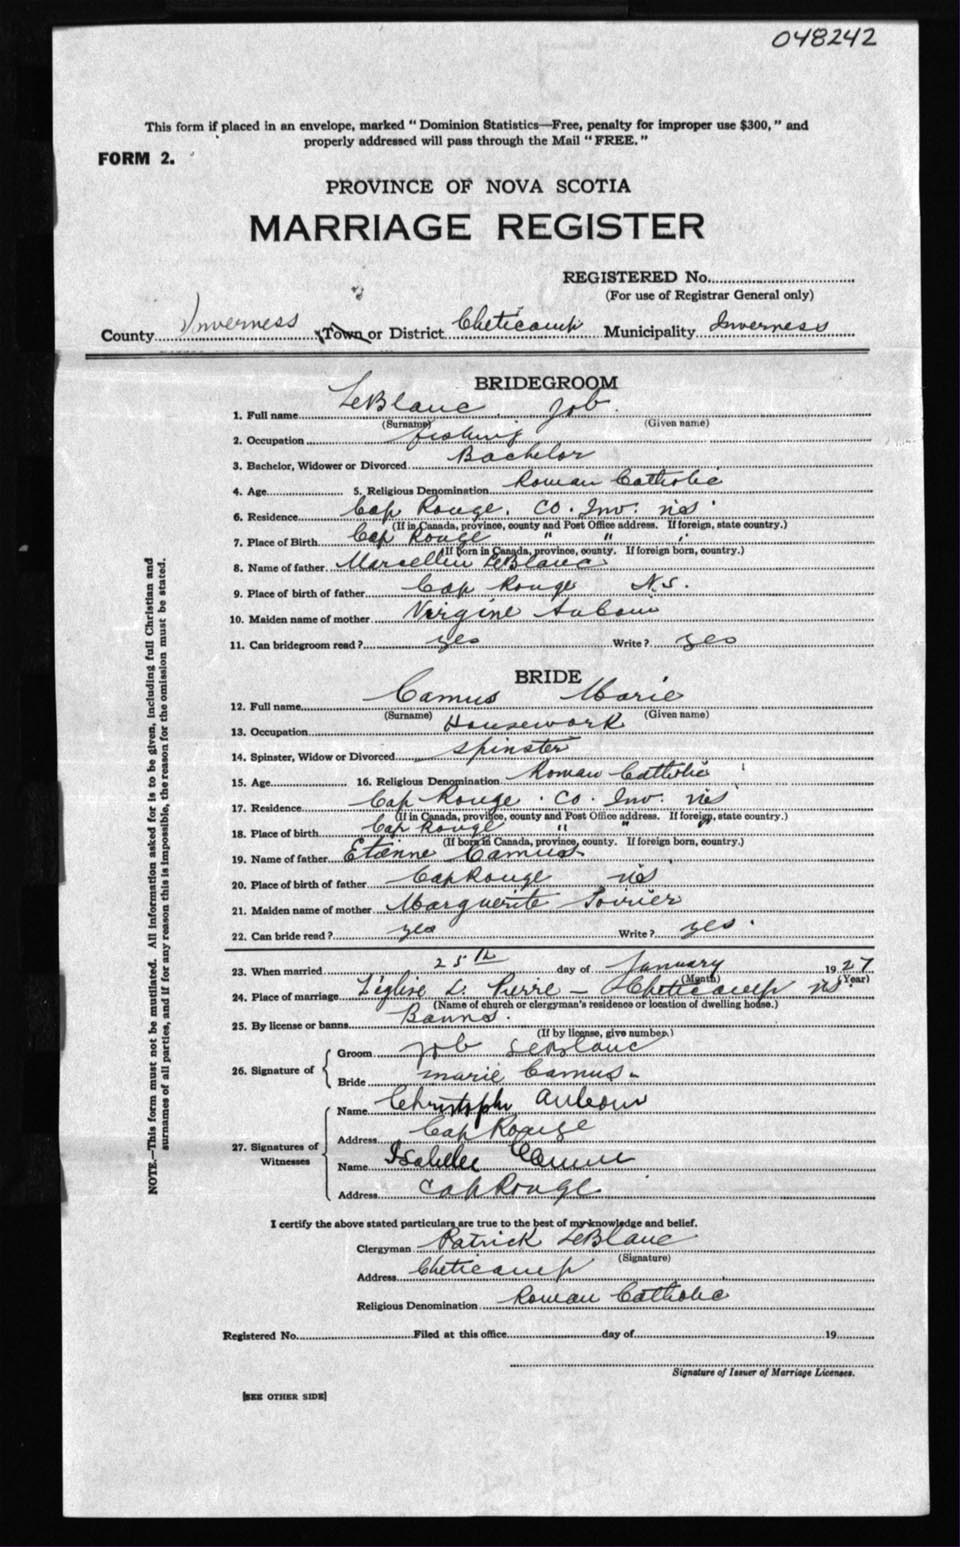 048242
This form if placed in an envelope, marked "Dominion Statistics—Free, penalty for improper use $300," and
properly addressed will pass through the Mail "FREE."
FORM 2.
PROVINCE OF NOVA SCOTIA
MARRIAGE REGISTER
REGISTERED No.
(For use of Registrar General only)
County Inverness Town or District Cheticamp Municipality Inverness
BRIDEGROOM
1. Full name LeBlanc Job
(Surname) (Given name)
2. Occupation fishing
3. Bachelor, Widower or Divorced Bachelor
4. Age 5. Religious Denomination Roman Catholic
6. Residence Cap Rouge. Co. Inv. NS
(If in Canada, province, county and Post Office address. If foreign, state country.)
7. Place of Birth Cap Rouge " " "
(If born in Canada, province, county. If foreign born, country.)
8. Name of father Marcellin LeBlanc
9. Place of birth of father Cap Rouge N.S.
10. Maiden name of mother Virgine Aucoin
11. Can bridegroom read? yes Write? yes
BRIDE
12. Full name Camus Marie
(Surname) (Given name)
13. Occupation Housework
14. Spinster, Widow or Divorced Spinster
15. Age 16. Religious Denomination Roman Catholic
17. Residence Cap Rouge. Co. Inv. NS
(If in Canada, province, county and Post Office address. If foreign, state country.)
18. Place of birth Cap Rouge " " "
(If born in Canada, province, county. If foreign born, country.)
19. Name of father Etienne Camus
20. Place of birth of father Cap Rouge NS
21. Maiden name of mother Marguerite Poirier
22. Can bride read? yes Write? yes.
23. When married 25th day of January 1927
(Month) (Year)
24. Place of marriage L'église St. Pierre — Cheticamp NS
(Name of church or clergyman's residence or location of dwelling house.)
25. By license or banns Banns.
(If by license, give number.)
26. Signature of
Groom Job LeBlanc
Bride Marie Camus
27. Signatures of Witnesses
Name Christophe Aucoin
Address Cap Rouge
Name Isabelle Camus
Address Cap Rouge
I certify the above stated particulars are true to the best of my knowledge and belief.
Clergyman Patrick LeBlanc
(Signature)
Address Cheticamp
Religious Denomination Roman Catholic
Registered No. Filed at this office day of 19
Signature of Issuer of Marriage Licenses.
[SEE OTHER SIDE]
NOTE.—This form must not be mutilated. All information asked for is to be given, including full Christian and
surnames of all parties, and if for any reason this is impossible, the reason for the omission must be stated.